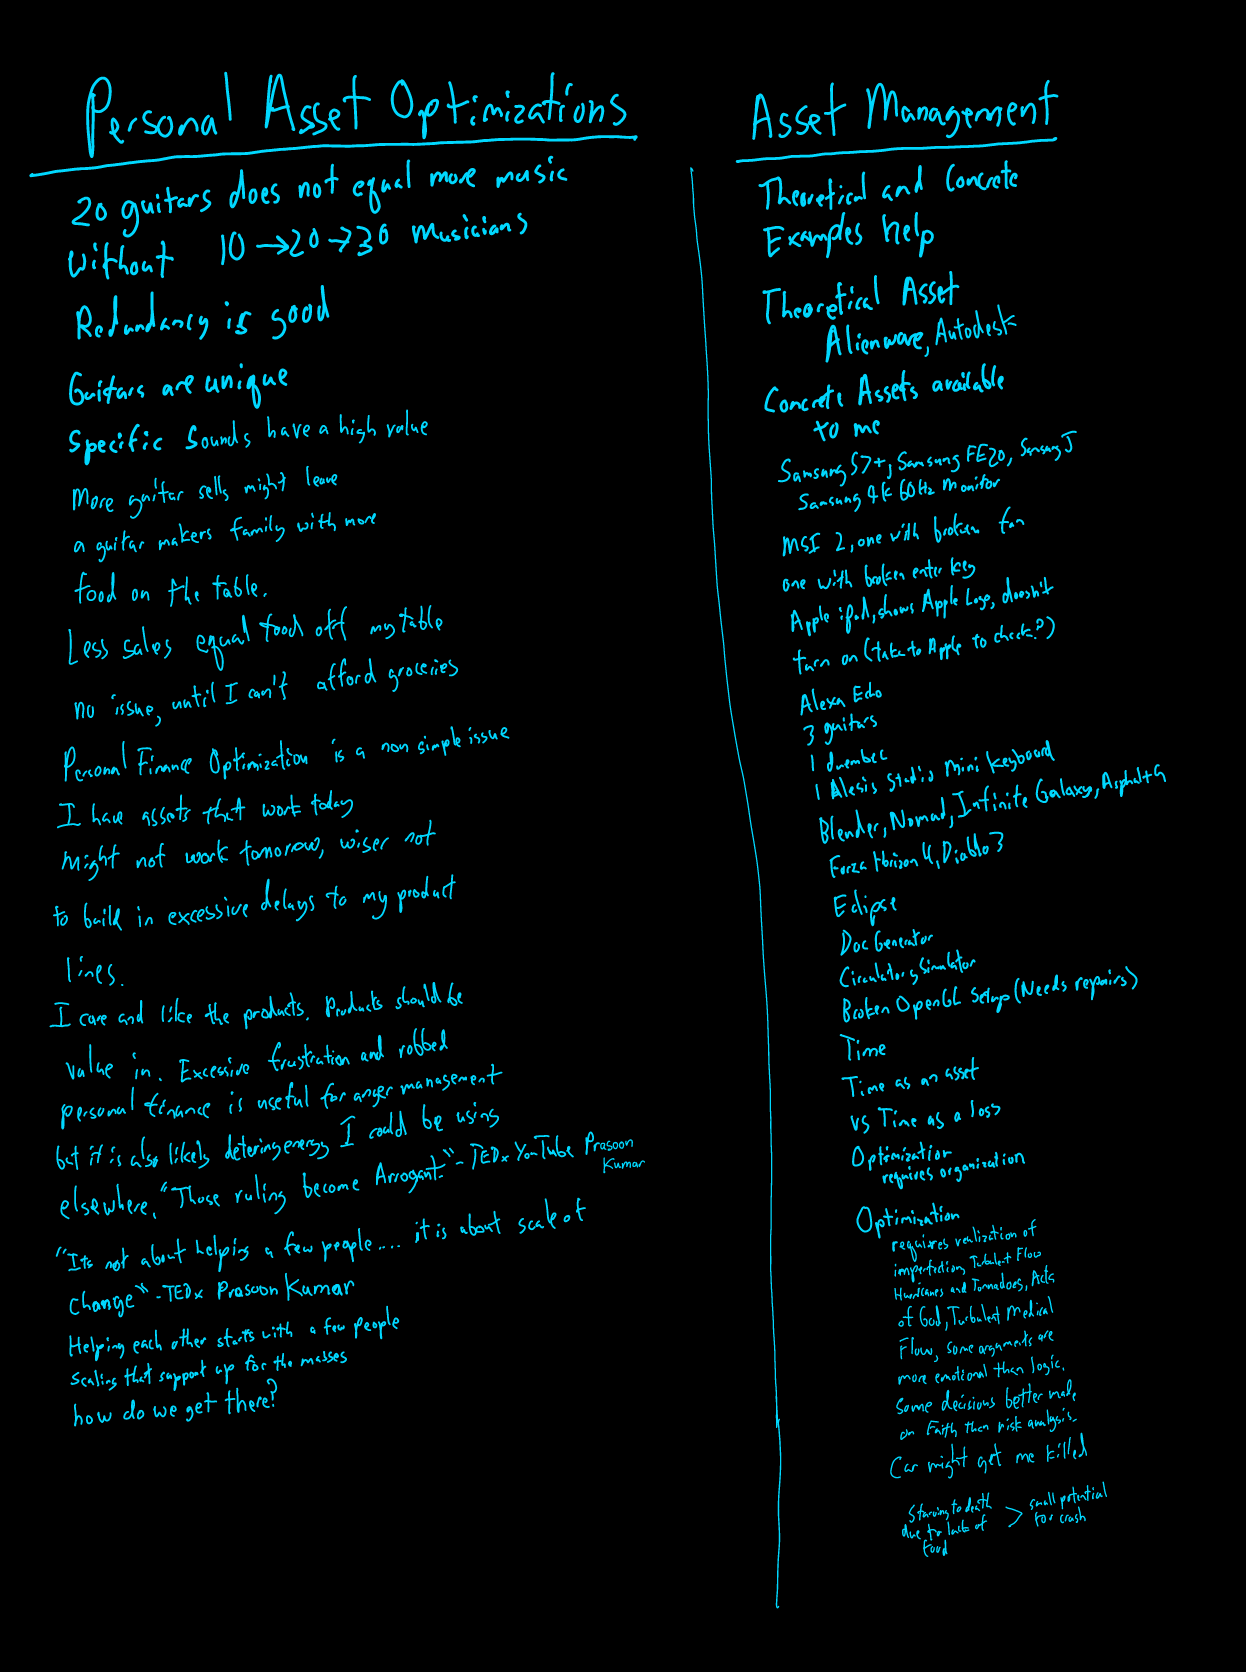 Personal Asset Optimizations
20 guitars does not equal more music
Without 10→20→30 musicians
Redundancy is good
Guitars are unique
Specific Sounds have a high value
More guitar sells might leave
a guitar makers family with more
food on the table.
Less sales equal food off my table
no issue, until I can't afford groceries
Personal Finance Optimization is a non simple issue
I have assets that work today
might not work tomorrow, wiser not
to build in excessive delays to my product
lines.
I care and like the products. Products should be
value in. Excessive frustration and robbed
personal finance is useful for anger management
but it is also likely detering energy I could be using
elsewhere. "Those ruling become Arrogant." - TEDx YouTube Prasoon
Kumar
"Its not about helping a few people.... it is about scale of
change" - TEDx Prasoon Kumar
Helping each other starts with a few people
Scaling that support up for the masses
how do we get there?
Asset Management
Theoretical and Concrete
Examples help
Theoretical Asset
Alienware, Autodesk
Concrete Assets available
to me
Samsung S7+, Samsung FE20, Samsung J
Samsung 4K 60Hz Monitor
MSI 2, one with broken fan
one with broken enter key
Apple ipod, shows Apple Logo, doesn't
turn on (take to Apple to check?)
Alexa Echo
3 guitars
1 dumbec
1 Alesis Studio Mini Keyboard
Blender, Nomad, Infinite Galaxy, Asphalt 9
Forza Horizon 4, Diablo 3
Eclipse
Doc Generator
Circulatory Simulator
Broken OpenGL Setup (Needs repairs)
Time
Time as an asset
vs Time as a loss
Optimization
requires organization
Optimization
requires realization of
imperfection, Turbulent Flow
Hurricanes and Tornadoes, Acts
of God, Turbulent Medical
Flow, some arguments are
more emotional then logic.
Some decisions better made
on Faith then risk analysis.
Car might get me killed
Starving to death
due to lack of
food
> small potential
for crash